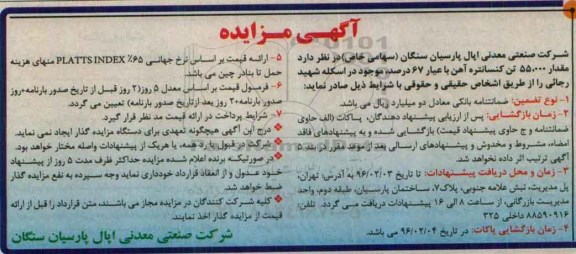 آگهی مزایده
شرکت صنعتی معدنی اپال پارسیان سنگان (سهامی خاص) در نظر دارد
مقدار ۵۵،۰۰۰ تن کنسانتره آهن با عیار ۶۷ درصد، موجود در اسکله شهید
رجائی را از طریق اشخاص حقیقی و حقوقی با شرایط ذیل صادر نماید:
۱- نوع تضمین: ضمانتنامه بانکی معادل دو میلیارد ریال می باشد.
۲- زمان بازگشایی: پس از ارزیابی پیشنهاد دهندگان، پاکات (الف حاوی
ضمانتنامه و ج حاوی پیشنهاد قیمت) بازگشایی شده و به پیشنهادهای فاقد
امضاء، مشروط و مخدوش و پیشنهادهای ارسالی بعد از موعد مقرر در متن
آگهی ترتیب اثر داده نخواهد شد.
۳- زمان و محل دریافت پیشنهادات: تا تاریخ ۹۶/۰۲/۰۳ به آدرس: تهران،
پل مدیریت، نبش علامه جنوبی، پلاک ۷، ساختمان پارسیان، طبقه دوم، واحد
مدیریت بازرگانی، از ساعت ۸ الی ۱۶ پیشنهادات دریافت می گردد. تلفن:
۸۸۵۹۰۹۱۶ داخلی ۳۲۵
۴- زمان بازگشایی پاکات: در تاریخ ۹۶/۰۲/۰۴ می باشد.
۵- ارائه قیمت بر اساس نرخ جهانی ۶۵٪ PLATTS INDEX منهای هزینه
حمل تا بنادر چین می باشد.
۶- فرمول قیمت بر اساس معدل ۵ روز (۲ روز قبل از تاریخ صدور بارنامه+روز
صدور بارنامه+۲ روز بعد از تاریخ صدور بارنامه) تعیین می گردد.
۷- شرایط پرداخت در ارائه قیمت مد نظر قرار گیرد.
درج این آگهی هیچگونه تعهدی برای دستگاه مزایده گذار ایجاد نمی نماید.
شرکت در قبول و رد همه، یا هریک از پیشنهادات واصله مختار خواهد بود.
در صورتیکه برنده اعلام شده مزایده حداکثر ظرف مدت ۵ روز از پیشنهاد
خود عدول و از انعقاد قرارداد خودداری نماید وجه سپرده به نفع مزایده گذار
ضبط خواهد شد.
کلیه شرکت کنندگان در مزایده مجاز می باشند، متن قرارداد را قبل از ارائه
قیمت از مزایده گذار اخذ نمایند.
شرکت صنعتی معدنی اپال پارسیان سنگان